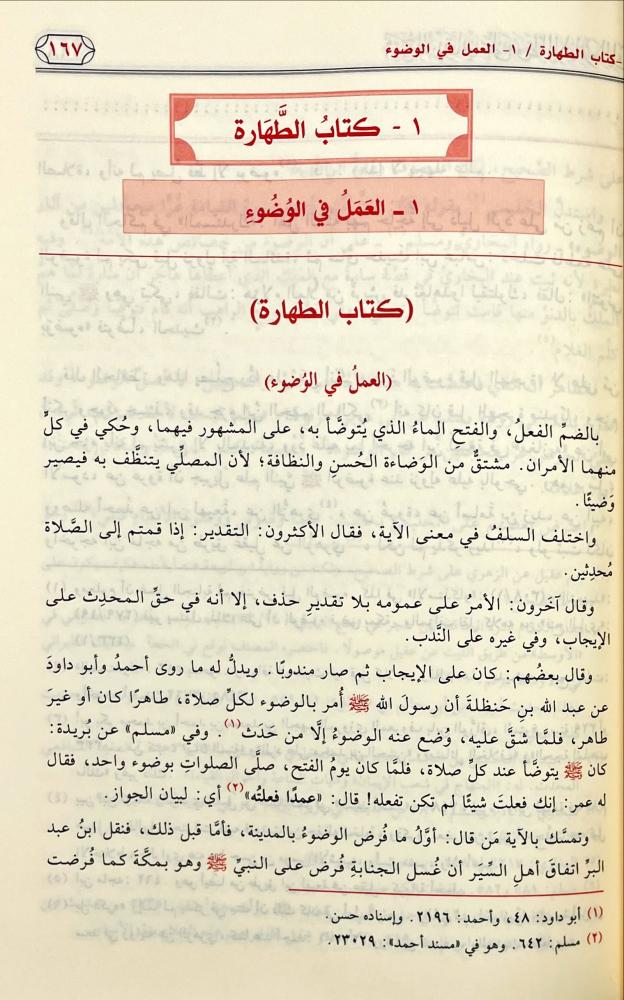 -كتاب الطهارة / ١- العمل في الوضوء
١٦٧
١ - كتابُ الطَّهَارة
١ ـ العَمَلُ في الوُضُوءِ
(كتاب الطهارة)
(العملُ في الوُضوء)
بالضمِّ الفعلُ، والفتحِ الماءُ الذي يُتوضَّأ به، على المشهور فيهما، وحُكي في كلٍّ
منهما الأمران. مشتقٌّ من الوَضاءة الحُسنِ والنظافة؛ لأن المصلِّي يتنظَّف به فيصير
وَضيئًا.
واختلف السلفُ في معنى الآية، فقال الأكثرون: التقدير: إذا قمتم إلى الصَّلاة
مُحدِثين.
وقال آخَرون: الأمرُ على عمومه بلا تقدير حذف، إلا أنه في حقِّ المحدِث على
الإيجاب، وفي غيره على النَّدب.
وقال بعضُهم: كان على الإيجاب ثم صار مندوبًا. ويدلُّ له ما روى أحمدُ وأبو داودَ
عن عبد الله بنِ حَنظلةَ أن رسولَ الله ﷺ أُمر بالوضوء لكلِّ صلاة، طاهرًا كان أو غيرَ
طاهر، فلمَّا شقَّ عليه، وُضع عنه الوضوءُ إلَّا من حَدَث(١). وفي «مسلم» عن بُريدة:
كان ﷺ يتوضَّأ عند كلِّ صلاة، فلمَّا كان يومُ الفتح، صلَّى الصلواتِ بوضوء واحد، فقال
له عمر: إنك فعلتَ شيئًا لم تكن تفعله! قال: «عمدًا فعلتُه»(٢) أي: لبيان الجواز.
وتمسَّك بالآية مَن قال: أوَّلُ ما فُرض الوضوءُ بالمدينة، فأمَّا قبل ذلك، فنقل ابنُ عبد
البرِّ اتفاقَ أهلِ السِّيَر أن غُسل الجنابةِ فُرض على النبيِّ ﷺ وهو بمكَّةَ كما فُرضت
(١) أبو داود: ٤٨، وأحمد: ٢١٩٦٠. وإسناده حسن.
(٢) مسلم: ٦٤٢. وهو في «مسند أحمد»: ٢٣٠٢٩.